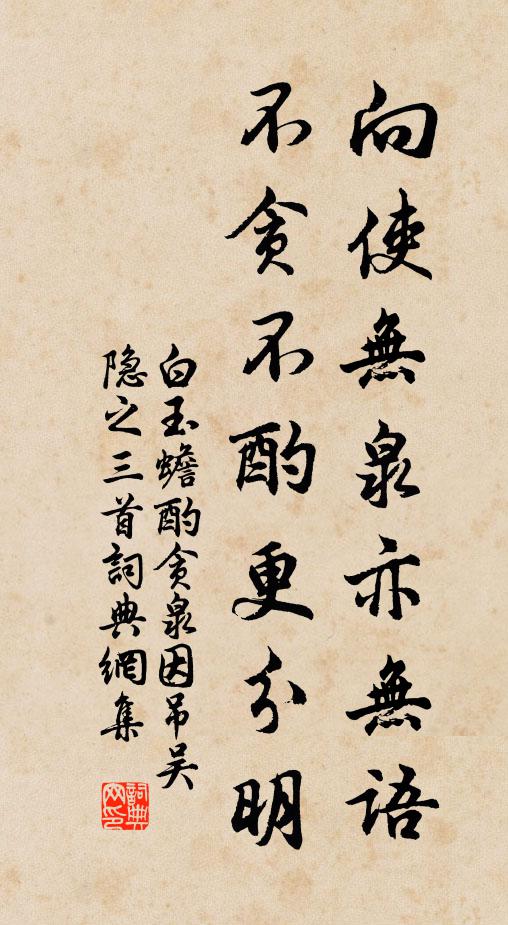 向使無泉亦無語
不貪不酌更分明
白玉蟾酌貪泉因吊吴
隐之三首詞典網集
詞典网印